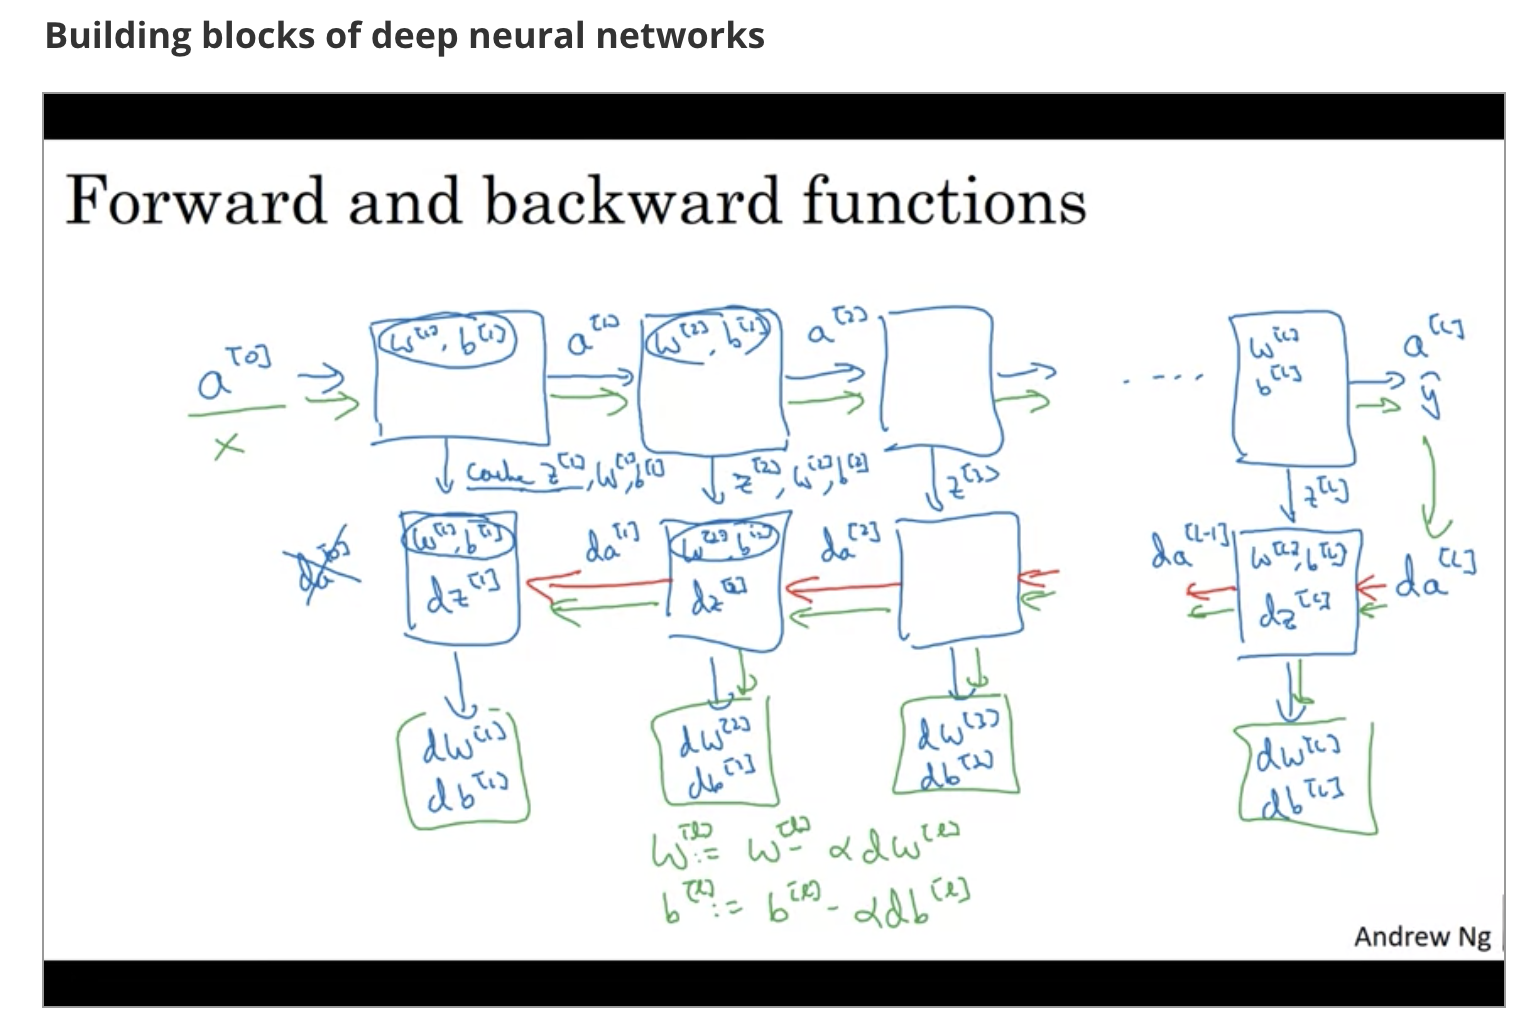 Building blocks of deep neural networks
Forward and backward functions
a^[0] w^[1], b^[1] a^[1] w^[2], b^[1] a^[2] .... w^[L] a^[L]
b^[L] ŷ
x
cache z^[1], w^[1], b^[1] z^[2], w^[2], b^[2] z^[3] z^[L]
da^[0] w^[1], b^[1] da^[1] w^[2], b^[2] da^[2] da^[L-1] w^[L], b^[L] da^[L]
dz^[1] dz^[2] dz^[L]
dw^[1] dw^[2] dw^[3] dw^[L]
db^[1] db^[2] db^[3] db^[L]
w^[l] := w^[l] - αdw^[l]
b^[l] := b^[l] - αdb^[l]
Andrew Ng